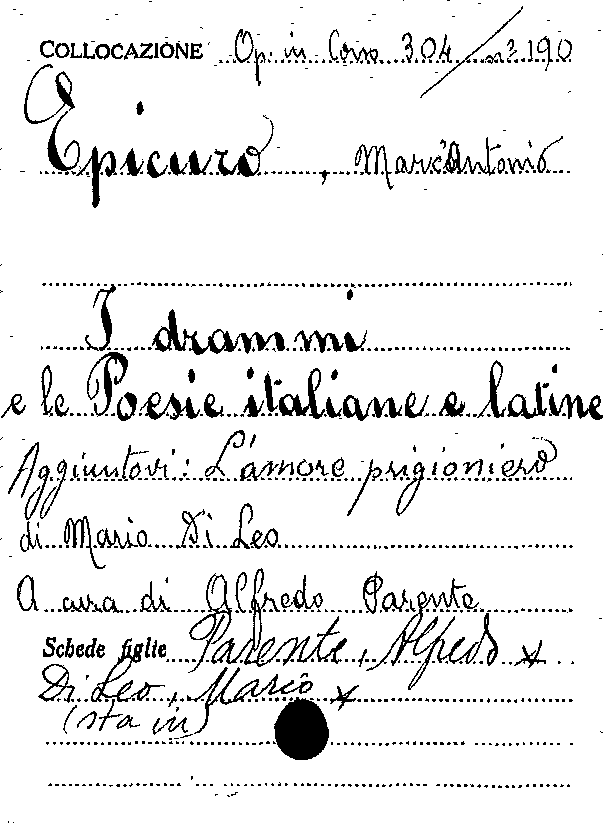 COLLOCAZIONE Op. in Corso 304 / nº 190
Epicuro, Marc'Antonio
I drammi
e le Poesie italiane e latine
Aggiuntovi: L'amore prigioniero
di Mario Di Leo
A cura di Alfredo Parente
Schede figlie Parente, Alfredo *
Di Leo, Mario *
(sta in)